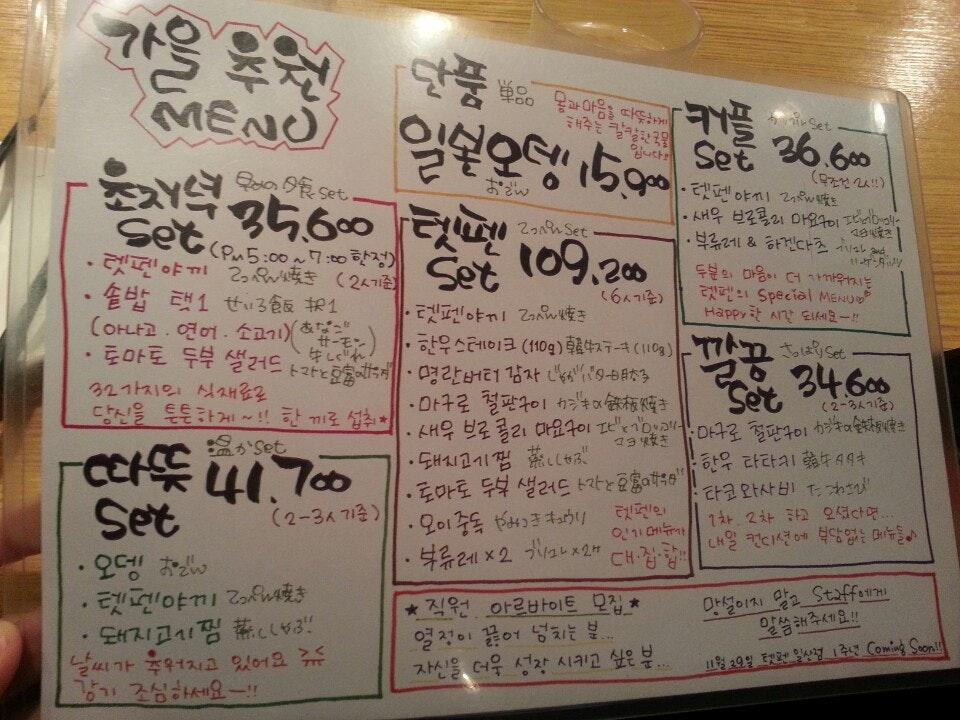 가을 추천
MENU
초저녁 早めの夕食 set
Set 35,600
(PM 5:00 ~ 7:00 한정)
· 텟펜야끼 てっぺん焼き (2人기준)
· 솥밥 택1 せいろ飯 択1
(아나고. 연어. 소고기) (あなご サーモン 牛しぐれ)
· 토마토 두부 샐러드 トマトと豆富のサラダ
32가지의 식재료로
당신을 튼튼하게~!! 한 끼로 섭취★
따뜻 温か set
Set 41,700
(2-3人기준)
· 오뎅 おでん
· 텟펜야끼 てっぺん焼き
· 돼지고기찜 蒸ししゃぶ
날씨가 추워지고 있어요
감기 조심하세요~!!
단품 単品
몸과마음을 따뜻하게
해주는 칼칼한국물
입니다!!
일본오뎅 15,900
おでん
텟펜 てっぺん Set
Set 109,200
(6人기준)
· 텟펜야끼 てっぺん焼き
· 한우스테이크 (110g) 韓牛ステーキ (110g)
· 명란버터 감자 じゃがバター明太子
· 마구로 철판구이 カジキの鉄板焼き
· 새우 브로콜리 마요구이 エビとブロッコリーマヨ焼き
· 돼지고기찜 蒸ししゃぶ
· 토마토 두부 샐러드 トマトと豆富のサラダ
· 오이중독 やみつきキュウリ
· 부류레 x 2 ブリュレ x 2ケ
텟펜의
인기메뉴가
대·집·합!!
커플 カップル Set
Set 36,600
(무조건 2人!!)
· 텟펜야끼 てっぺん焼き
· 새우 브로콜리 마요구이 エビとブロッコリーマヨ焼き
· 부류레 & 하겐다즈 ブリュレ and ハーゲンダッツ
두분의 마음이 더 가까워지는
텟펜의 Special MENU♡
Happy한 시간 되세요~!!
깔끔 さっぱり Set
Set 34,600
(2-3人기준)
· 마구로 철판구이 カジキの鉄板焼き
· 한우 타타키 韓牛タタキ
· 타코와사비 たこわさび
1차. 2차 하고 오셨다면...
내일 컨디션에 부담없는 메뉴들♪
★ 직원. 아르바이트 모집 ★
열정이 끓어 넘치는 분...
자신을 더욱 성장 시키고 싶은 분...
망설이지 말고 Staff에게
말씀해주세요!!
11월 29일 텟펜 일산점 1주년 Coming Soon!!